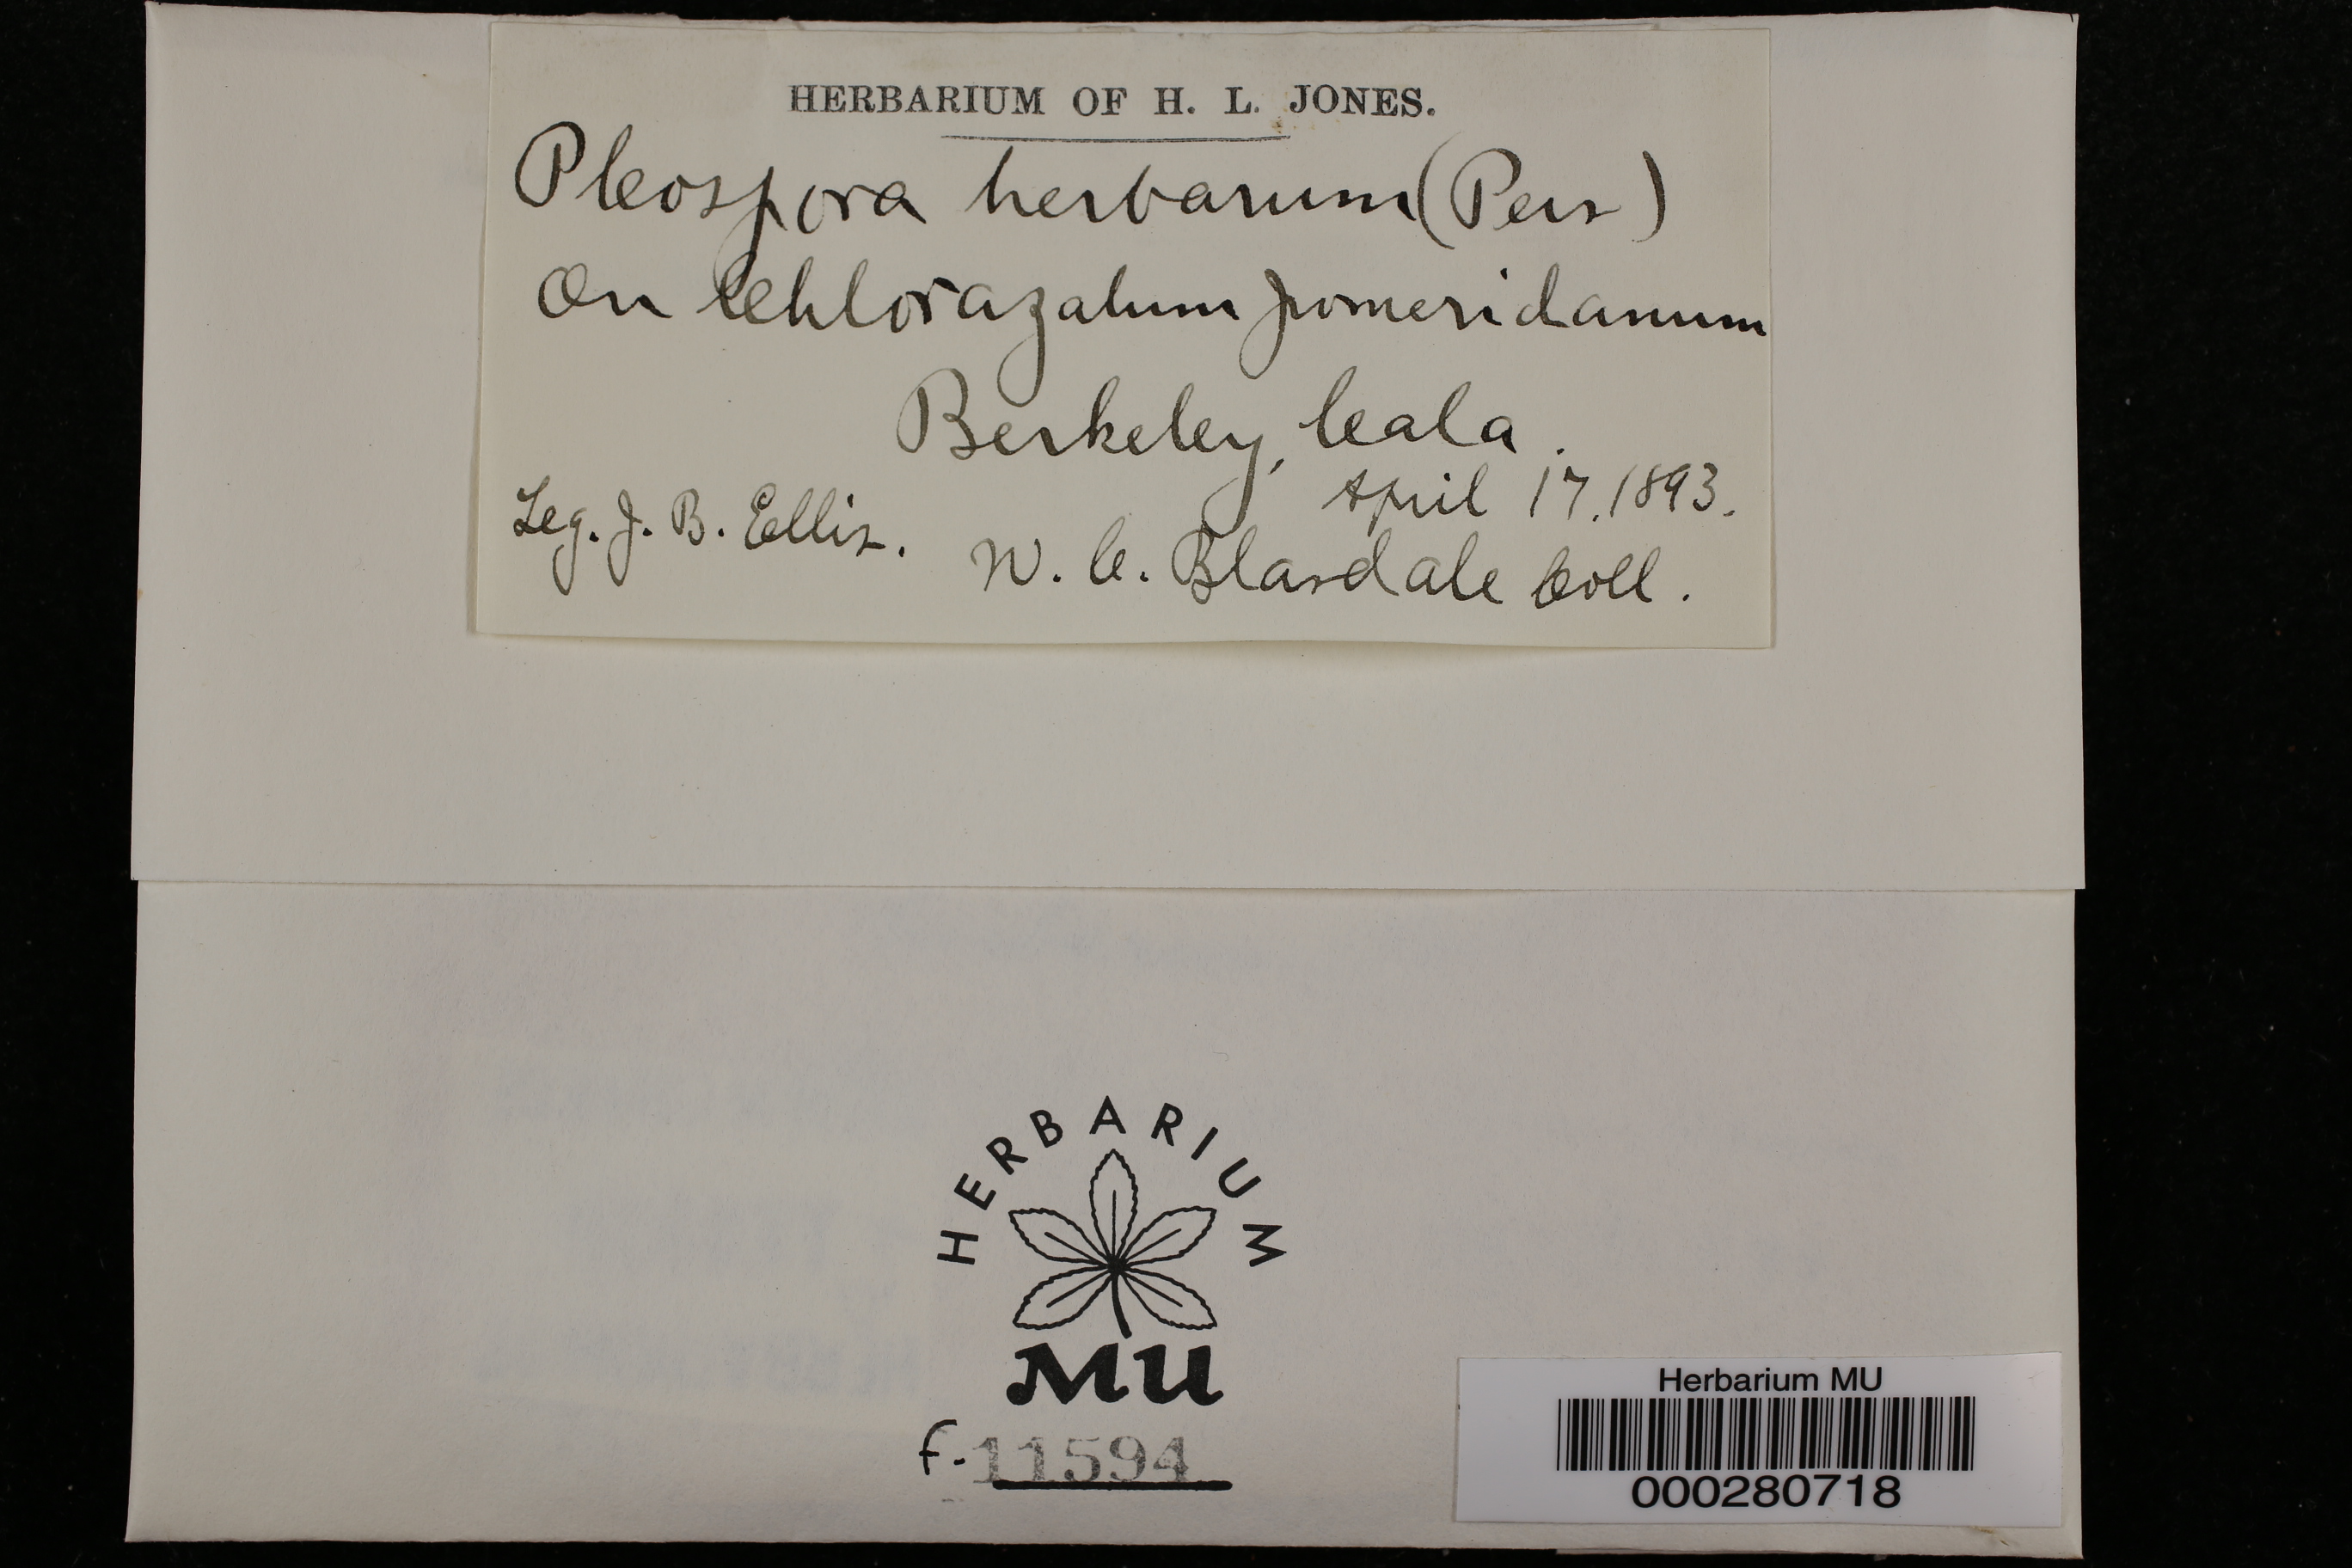 HERBARIUM OF H. L. JONES.
Pleospora herbarum (Pers)
On Chlorazalum pomeridanum
Berkeley, Cala.
April 17. 1893.
Leg. J. B. Ellis.
W. C. Blasdale Coll.
HERBARIUM
MU
f. 11594
Herbarium MU
000280718